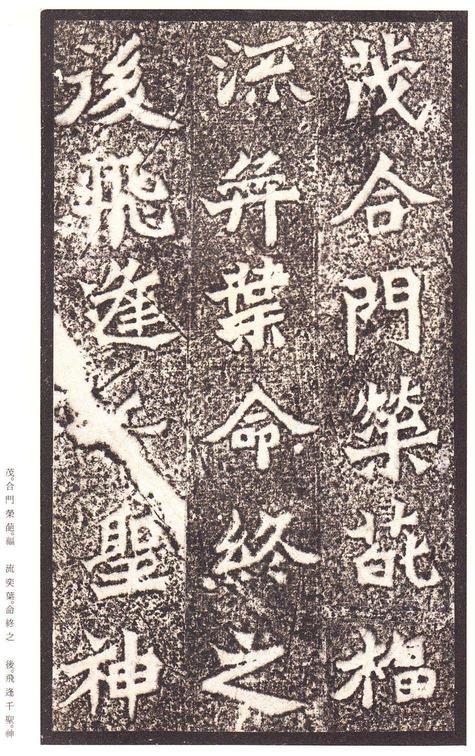 茂合門榮葩福
流弈葉命終之
後飛逢千聖神
茂。合門榮葩。福　流奕葉。命終之　後。飛逢千聖。神